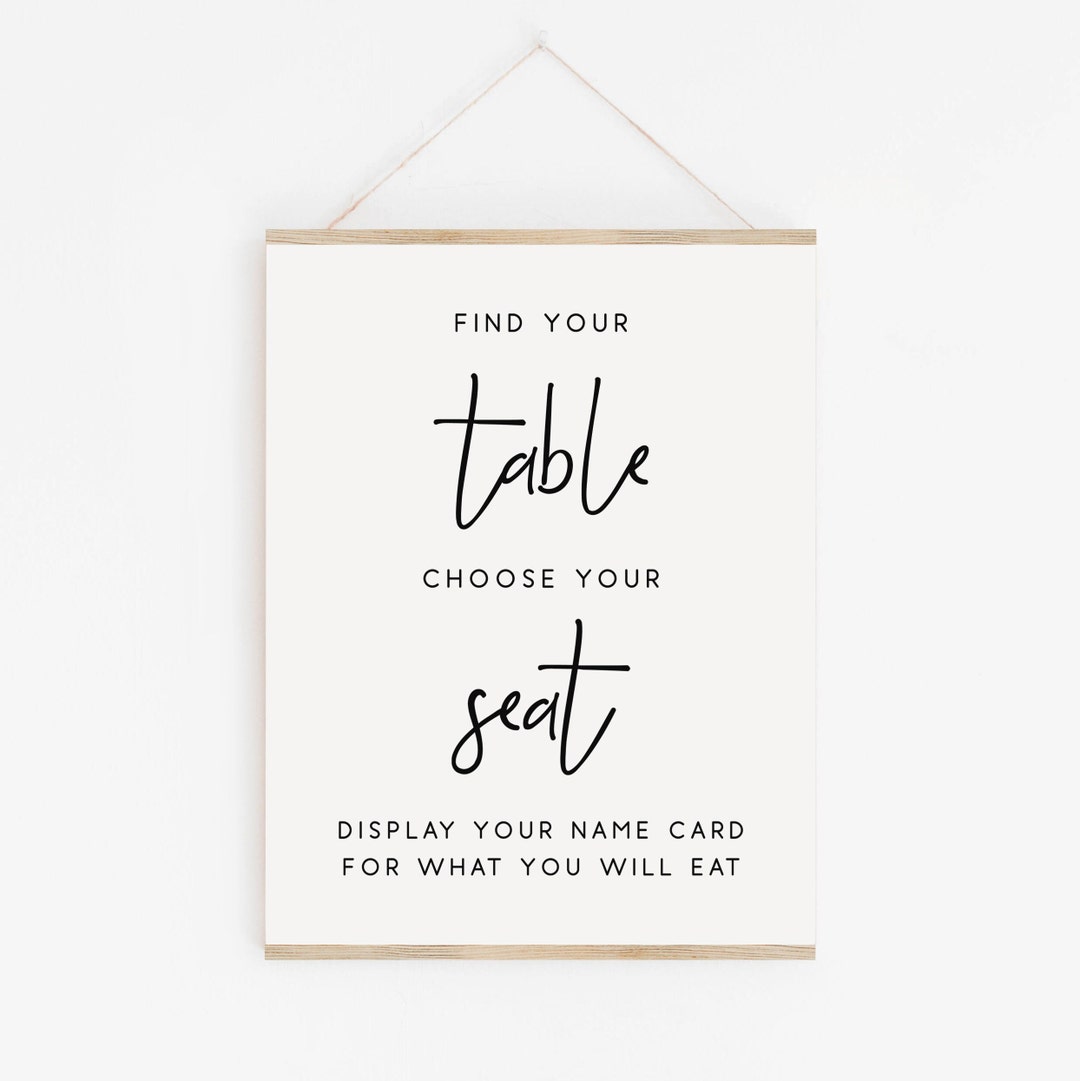 FIND YOUR
table
CHOOSE YOUR
seat
DISPLAY YOUR NAME CARD
FOR WHAT YOU WILL EAT